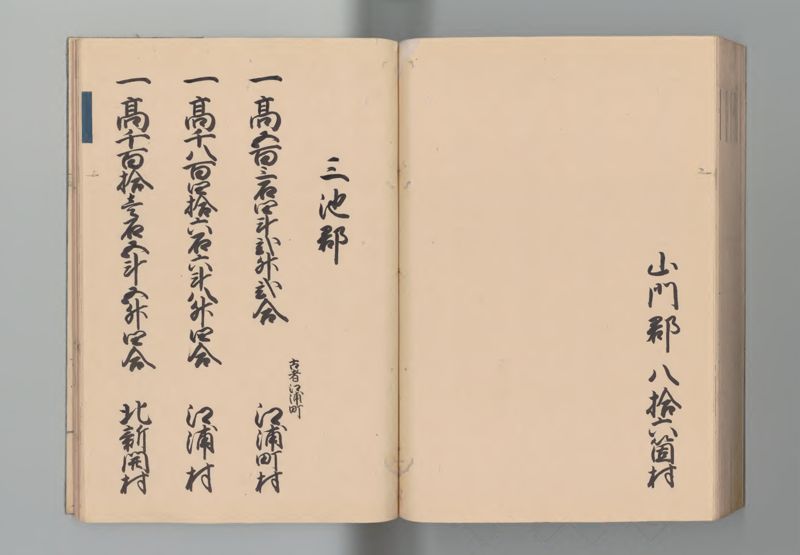 山門郡 八拾六箇村
三池郡
古者江浦町
一 高五百三石四斗弐升弐合 江浦町村
一 高千八百四拾六石六斗八升四合 江浦村
一 高千百拾壱石五斗五升四合 北新開村